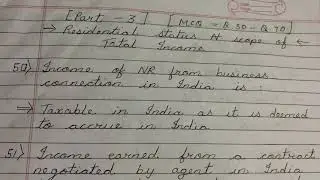 [Part - 3] [MCQ - Q 50 - Q 70]
→ Residential Status & scope of ←
Total Income
50) Income of NR from business
connection in India is :
⇒ Taxable in India as it is deemed
to accrue in India
51) Income earned from a contract
negotiated by agent in India